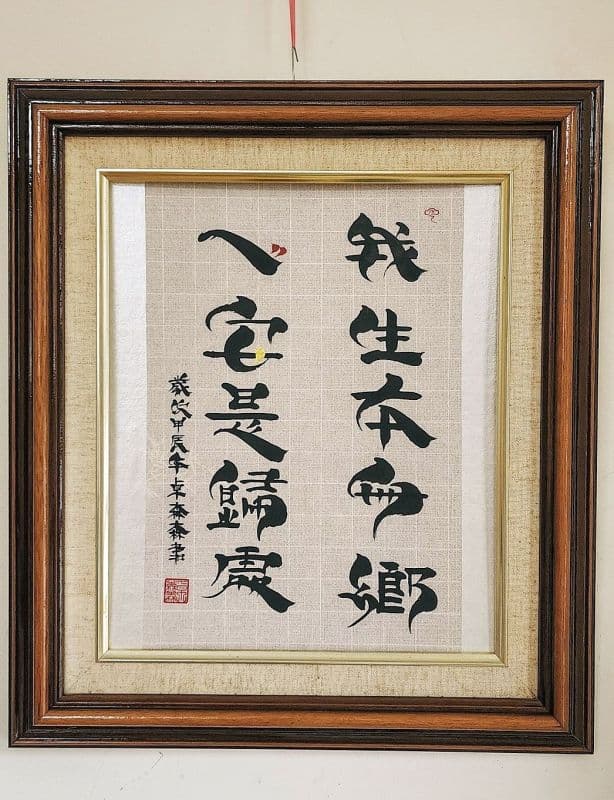 我生本無鄉
心安是歸處
歲次甲辰年卓森森書